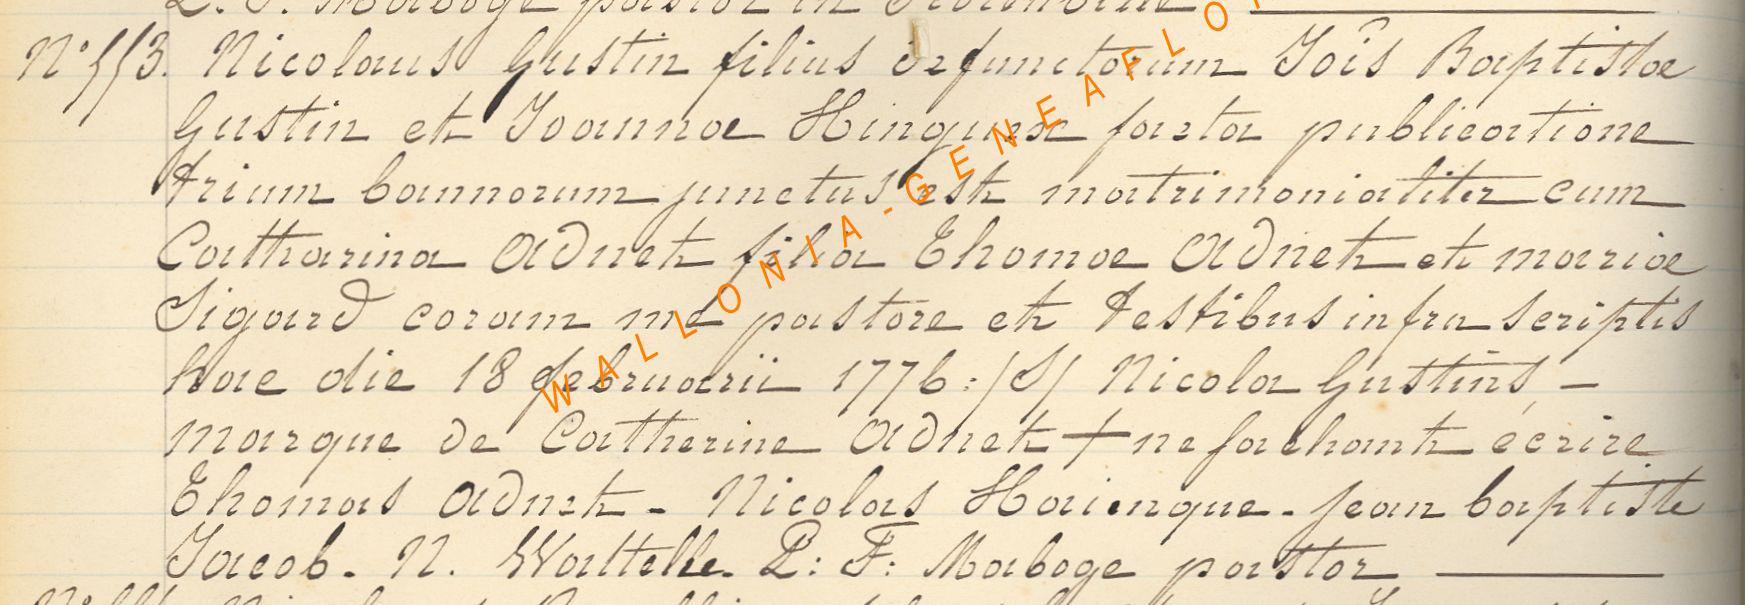 L. F. Maboge pastor in
N° 553. Nicolaus Gustin filius defunctorum Jois Baptistae
Gustin et Joannae Hingue facta publicatione
trium bannorum junctus est matrimonialiter cum
Catharina Adnet filia Thomae Adnet et mariae
Sigard coram me pastore et testibus infra scriptis
hac die 18 februarii 1776: /S/ Nicola Gustins, -
marque de Catherine Adnet + ne sachant écrire
Thomas Adnet - Nicolas Haiengue - jean baptiste
Jacob. N. Wattelle. L: F: Maboge pastor
WALLONIA-GENEAFLO